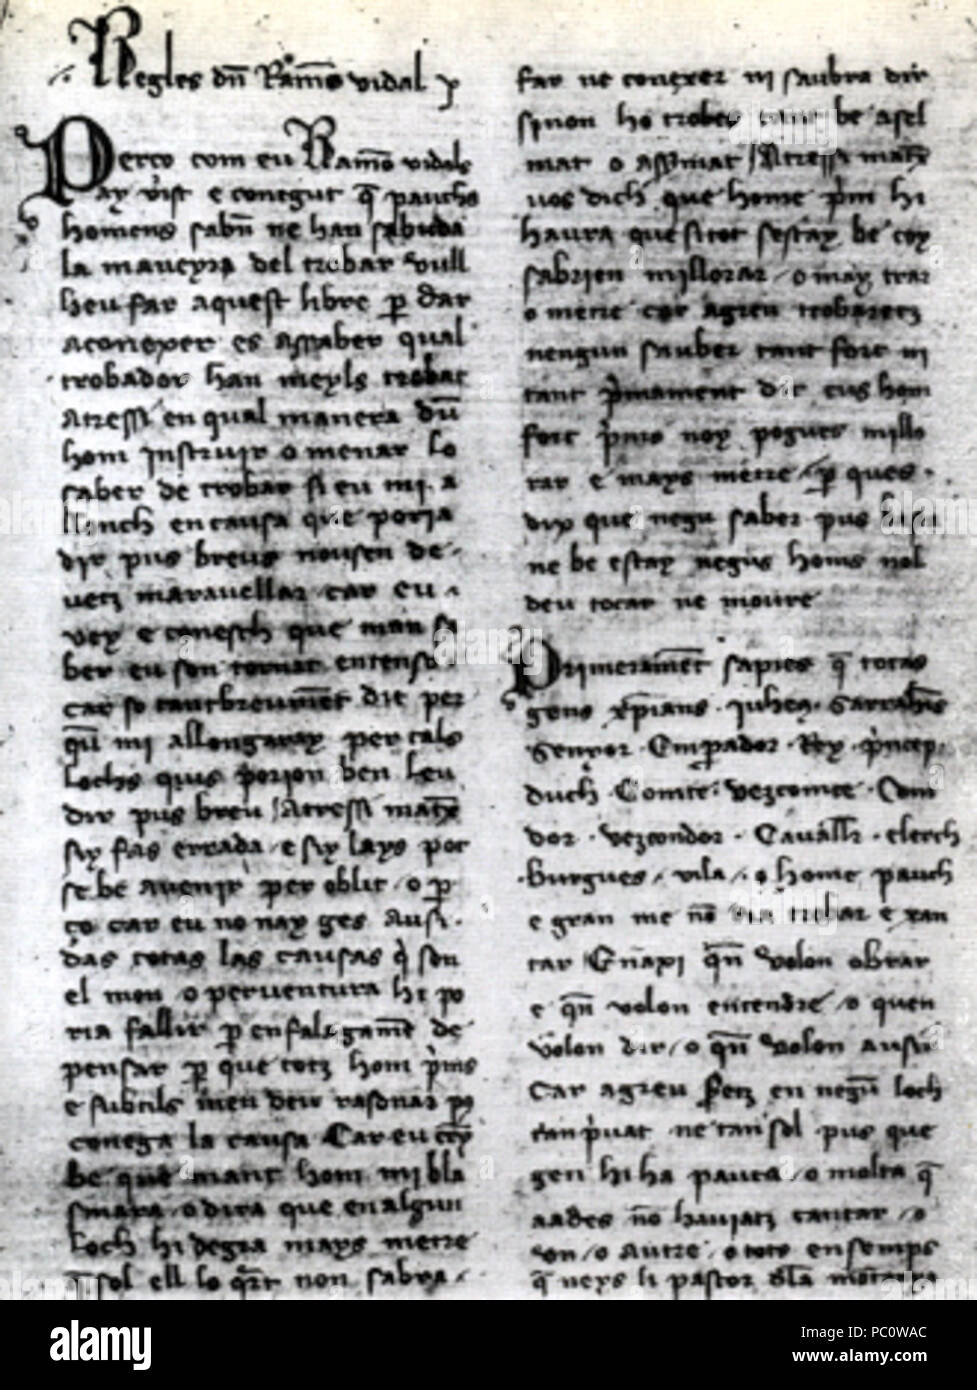 Regles dn̄ Ramō vidal
Perço com eu Ramō vidals
ay vist e conegut q̄ pauchs
homens sabē ne han sabuda
la maneyra del trobar vull
heu far aquest libre p̱ dar
aconexer es assaber qual
trobador han meyls trobat
atressi en qual manera dū
hom instruir o menar lo
saber de trobar si eu mi a
llonch en causa que poria
dir pus breus nousen de
vetz maravellar car eu
vey e conesch que man sa
ber eu son tornat entenso
car so tantbreumēt dit per
qū mi allongaray per cals
lochs quis porion ben leu
dir pus breu Atressi matex
siy fas errada e siy lays pot
se be avenir per oblit o p̱
ço car eu no nay ges ausi
das totas las causas q̄ son
el mon o perventura hi po
ria fallir p̱ enfalagamēt de
pensar p̱ que totz hom prims
e subtils men deu rasonar
conega la causa Car eu
be que mant hom mi bla
smara o dira que en algun
loch hi degra mays metre
q̄ sol ell lo qrt non sabra
far ne conexer ni saubra dir
sinon ho trobes tant be asel
mat o assimat Atressi matex
vos dich que home prim hi
haura que si tot sestay be coy
sabrien millorar o may trar
o metre cor agreu trobaretz
nengun sauber tant fort ni
tant primament dit eus hom
fort prims noy pogues millo
rar e mays metre p̱ ques
dix que negu saber pus
ne be estay negus homs nol
deu tocar ne moure
Primeramēt sapies q̄ totas
gens xp̄ians juheus sarrahis
senyor Emperador Rey princep
duch Comte vezcomte Com
dor vezcondor Cavallr clerch
burgues vila o home pauch
e gran me nō trobar e xan
tar Enaxi qn̄ volon obrar
e qn̄ volon entendre o quen
volon dir o qn̄ volon ausir
Car agreu sretz en negū loch
tan privat ne tan sol pus que
gen hi ha pauca o molta q̄
aades nō haujatz cantar o
on o autre o tots ensemps
q̄ neys li pastor dla
alamy
Image ID: PC0WAC
www.alamy.com